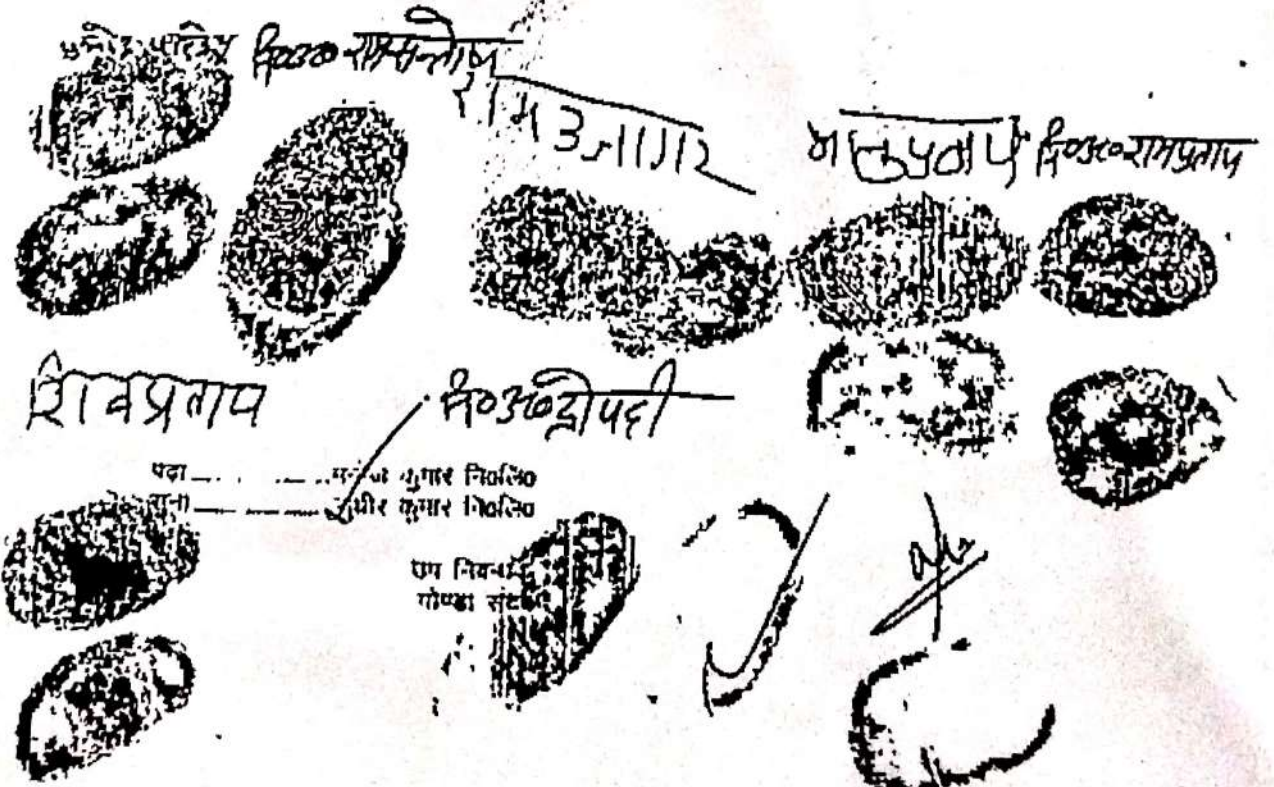 नि०अ० रामसन्तोष
राम उजागर
भानुप्रताप नि०अ० रामप्रताप
शिवप्रताप नि०अ० द्रौपदी
पढ़ा कुमार नि०लि०
सुधीर कुमार नि०लि०
उप निबन्धक
गोण्डा सदर